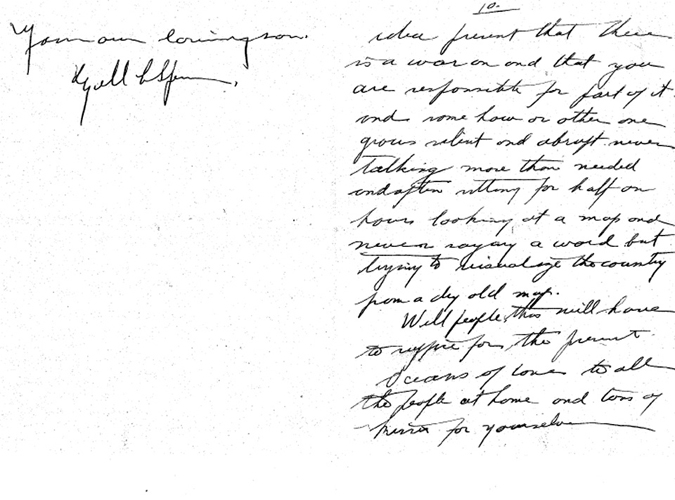 10.
idea present that there
is a war on and that you
are responsible for part of it
and some how or other one
grows silent and abrupt never
talking more than needed
and often sitting for half an
hours looking at a map and
never saying a word but
trying to visualize the country
from a dry old map.
Well people, this will have
to suffice for the present.
Oceans of love to all
the people at home and tons of
kisses for yourselves
Your own loving son.